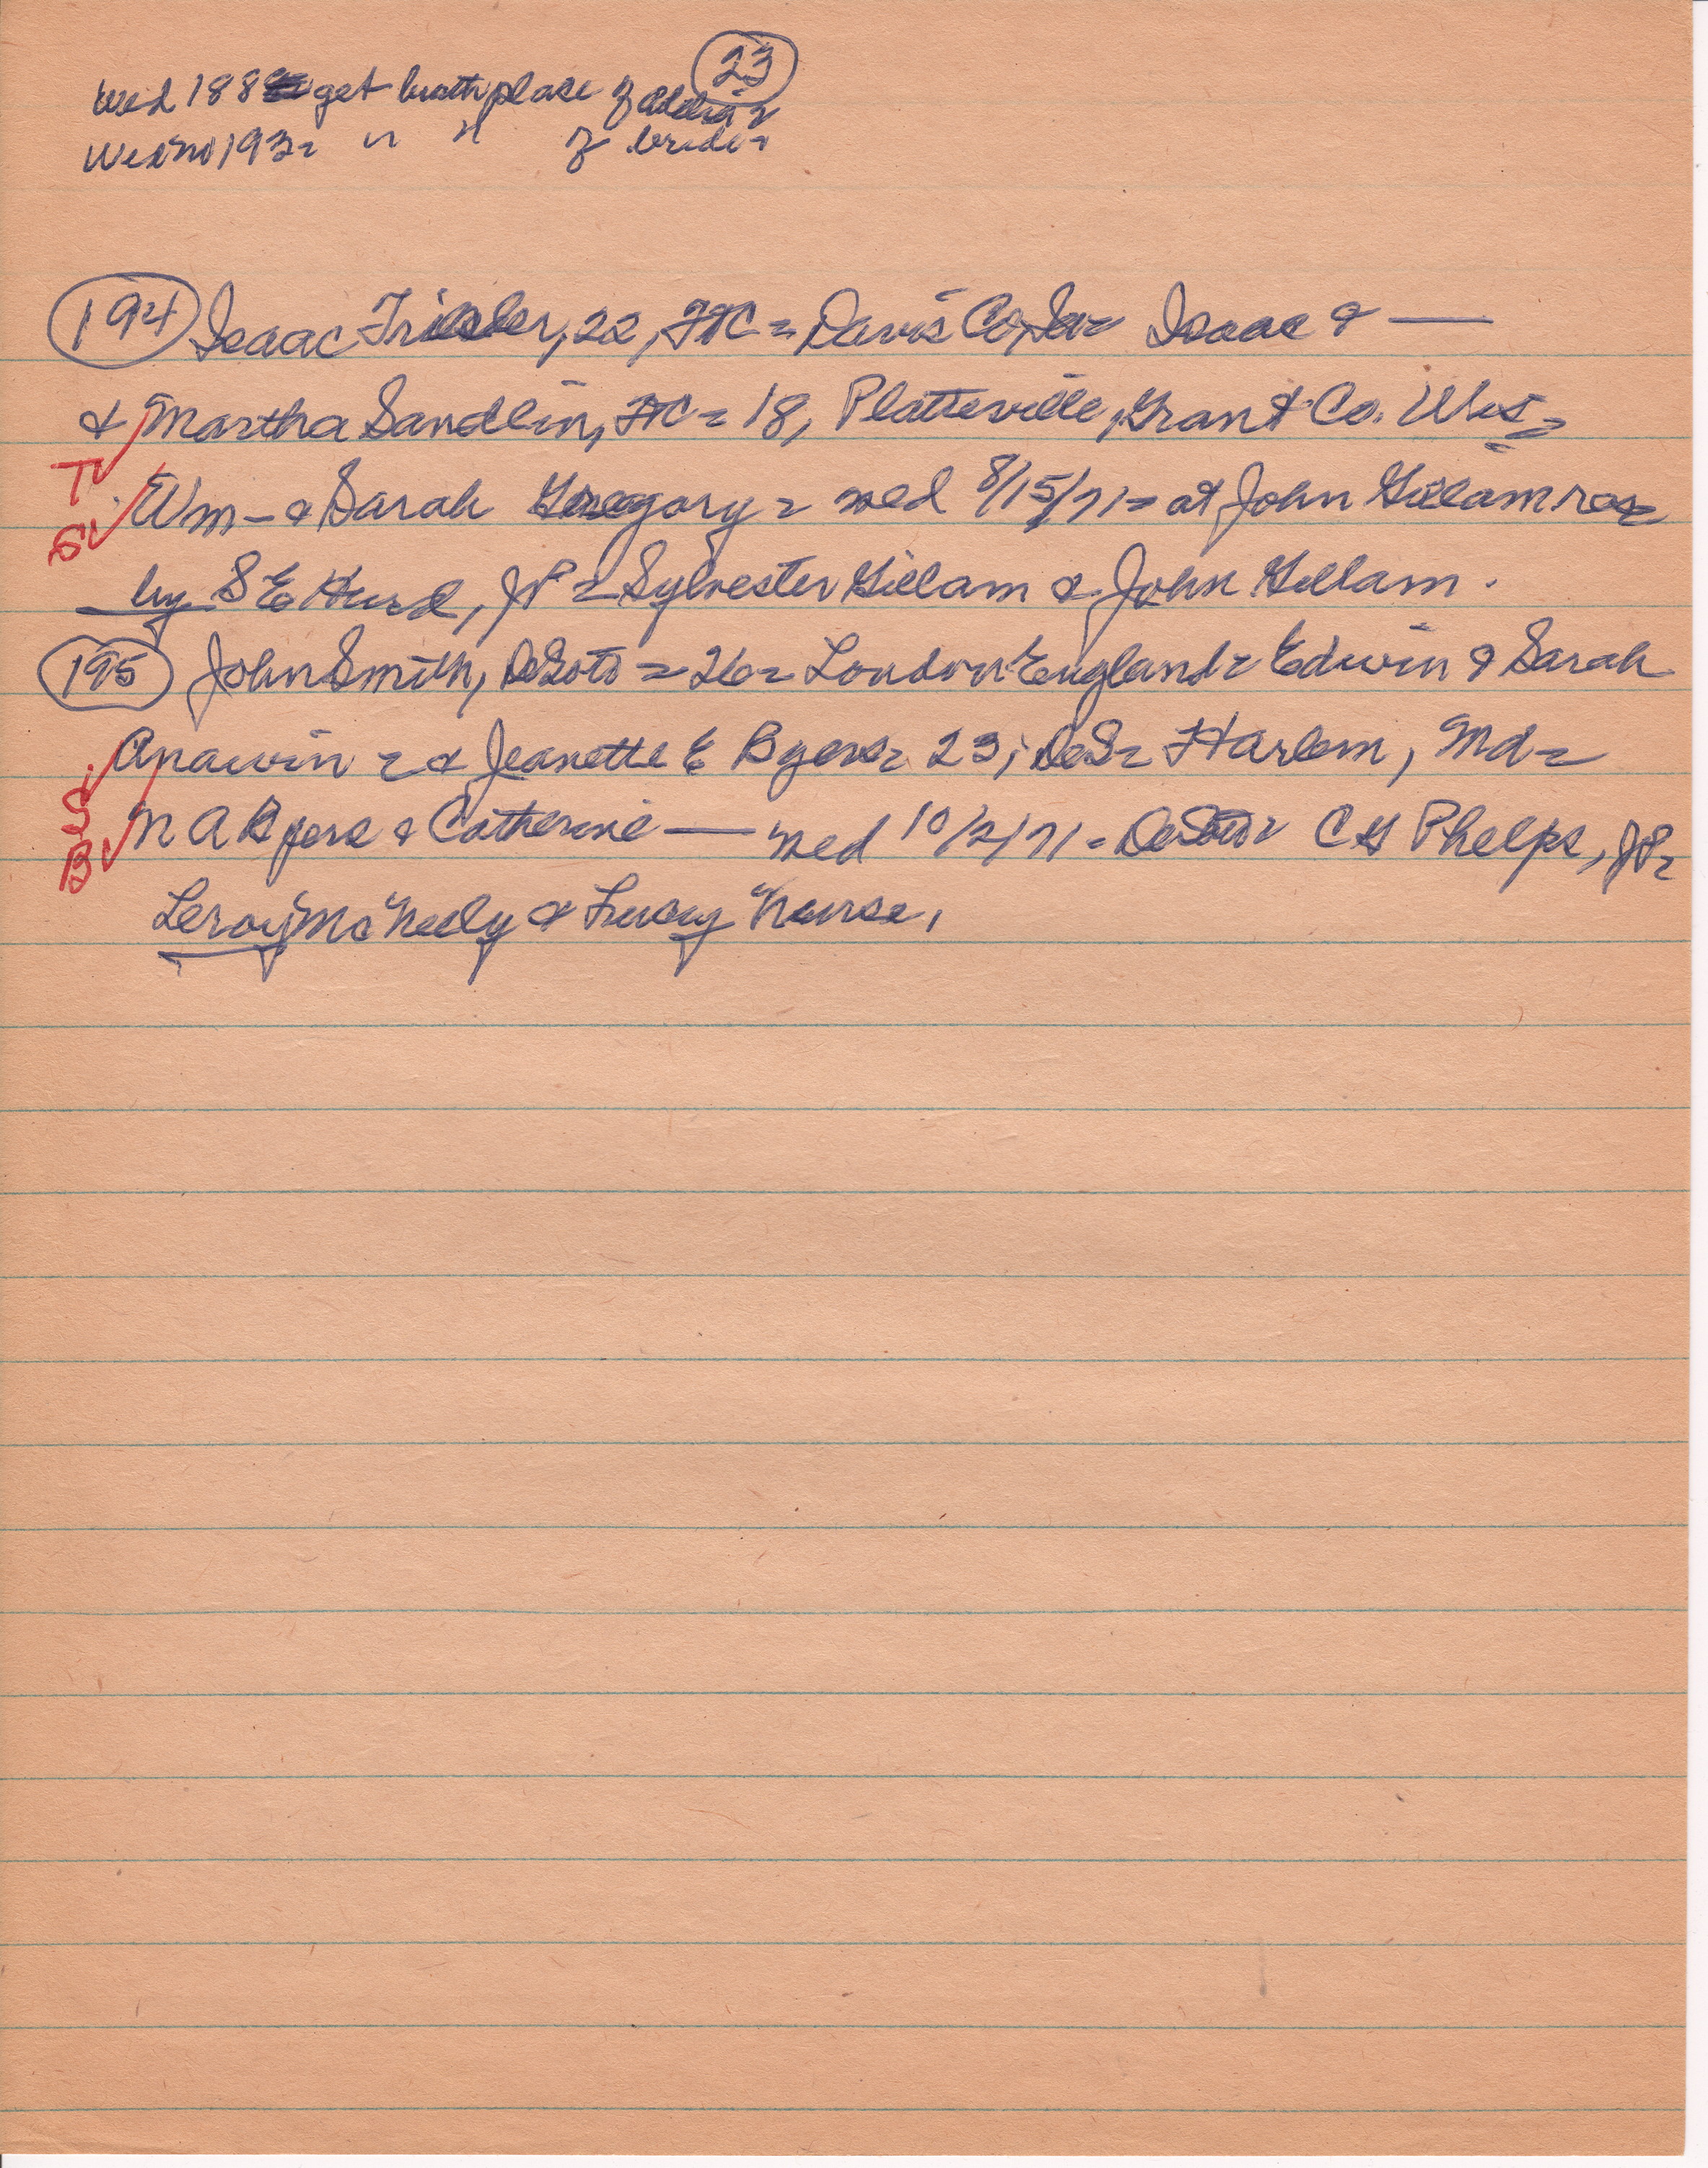 23
Wed 188 get birth place of
Wed no 193 = " " of bride =
194 Isaac Trissler, 22, FTC = Davis Co, Ia = Isaac & —
& Martha Sandlin, FTC = 18, Platteville, Grant Co. Wis =
T
Wm - & Sarah Gregory = wed 8/15/71 = at John Gillam res =
S
by S E Hurd, JP = Sylvester Gillam & John Gillam.
195 John Smith, DeSoto = 26 = London England = Edwin & Sarah
Anawin = & Jeanette E Byers = 23, DeS = Harlem, Md =
S
N A Byers & Catherine — wed 10/2/71 - DeSoto = C H Phelps, JP =
B
Leroy McNeely & Lucy Nurse.